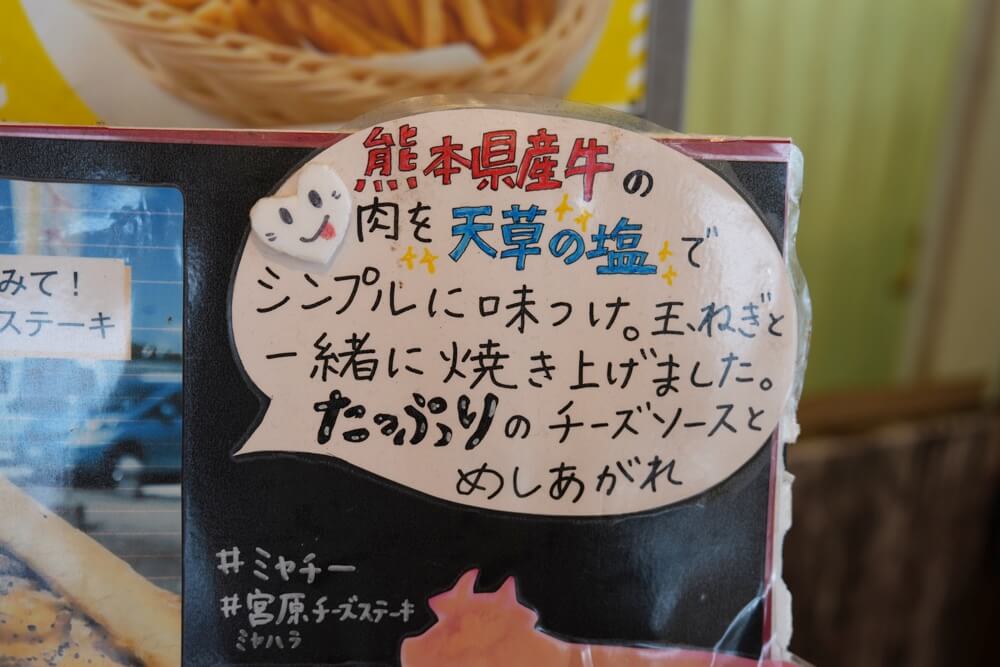 熊本県産牛の
肉を天草の塩で
シンプルに味つけ。玉ねぎと
一緒に焼き上げました。
たっぷりのチーズソースと
めしあがれ
みて！
ステーキ
#ミヤチー
#宮原チーズステーキ
ミヤハラ